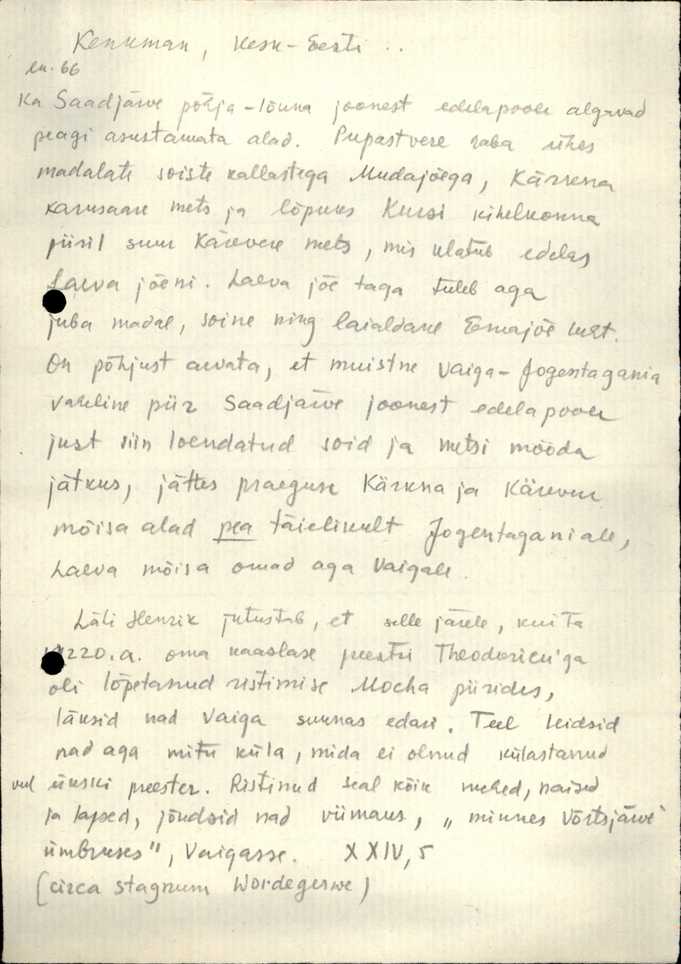 Kenkman, Kesk-Eesti ..
lk. 66
Ka Saadjärve põhja-lõuna joonest edelapoole algavad
peagi asustamata alad. Pupastvere raba ühes
madalate soiste kallastega Mudajõega, Kärkna
Karusaare mets ja lõpuks Kursi kihelkonna
piiril suur Kärevere mets, mis ulatub edelas
Laeva jõeni. Laeva jõe taga tuleb aga
juba madal, soine ning laialdane Emajõe luht.
On põhjust arvata, et muistne Vaiga-Jogentagania
vaheline piir Saadjärve joonest edelapoole
just siin loendatud soid ja metsi mööda
jätkus, jättes praeguse Kärkna ja Kärevere
mõisa alad pea täielikult Jogentaganiale,
Laeva mõisa omad aga Vaigale.
Läti Henrik jutustab, et selle järele, kui ta
1220.a. oma kaaslase preestri Theodoricu'ga
oli lõpetanud ristimise Mocha piirides,
läksid nad Vaiga suunas edasi. Teel leidsid
nad aga mitu küla, mida ei olnud külastanud
veel ükski preester. Ristinud seal kõik mehed, naised
ja lapsed, jõudsid nad viimaks, „minnes Võrtsjärve
ümbruses", Vaigasse. XXIV, 5
(circa stagnum Wordegerwe)